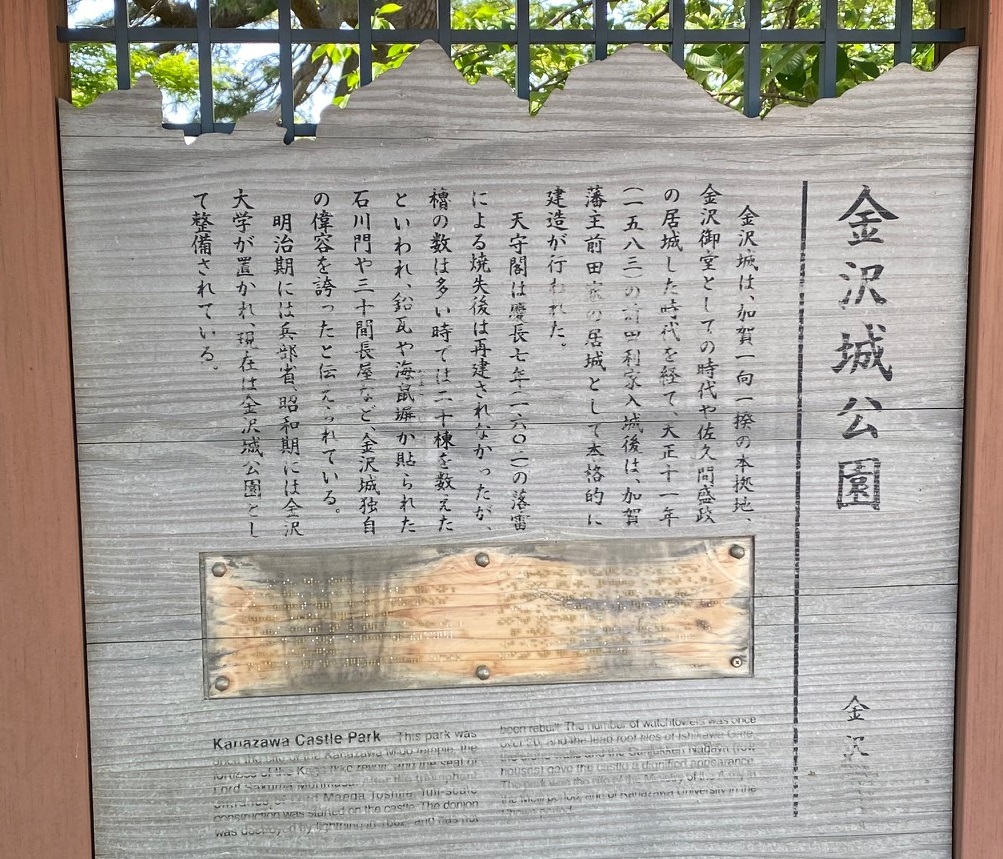 金沢城公園
金沢
金沢城は、加賀一向一揆の本拠地、
金沢御堂としての時代や佐久間盛政
の居城した時代を経て、天正十一年
(一五八三)の前田利家入城後は、加賀
藩主前田家の居城として本格的に
建造が行われた。
天守閣は慶長七年(一六〇二)の落雷
による焼失後は再建されなかったが、
櫓の数は多い時では二十棟を数えた
といわれ、鉛瓦や海鼠塀が貼られた
石川門や三十間長屋など、金沢城独自
の偉容を誇ったと伝えられている。
明治期には兵部省、昭和期には金沢
大学が置かれ、現在は金沢城公園とし
て整備されている。
Kanazawa Castle Park This park was
once the site of the Kanazawa Mido temple, the
fortress of the Kaga Ikko revolt, and the seat of
Lord Sakuma Morimasa. After the triumphant
entrance of Lord Maeda Toshiie, full-scale
construction was started on the castle. The donjon
was destroyed by lightning in 1602, and has not
been rebuilt. The number of watchtowers was once
over 20, and the lead roof tiles of Ishikawa Gate,
the stone walls and the Sanjukken Nagaya (row
houses) gave the castle a dignified appearance.
The park was the site of the Ministry of the Army in
the Meiji period, and of Kanazawa University in the
Showa period.